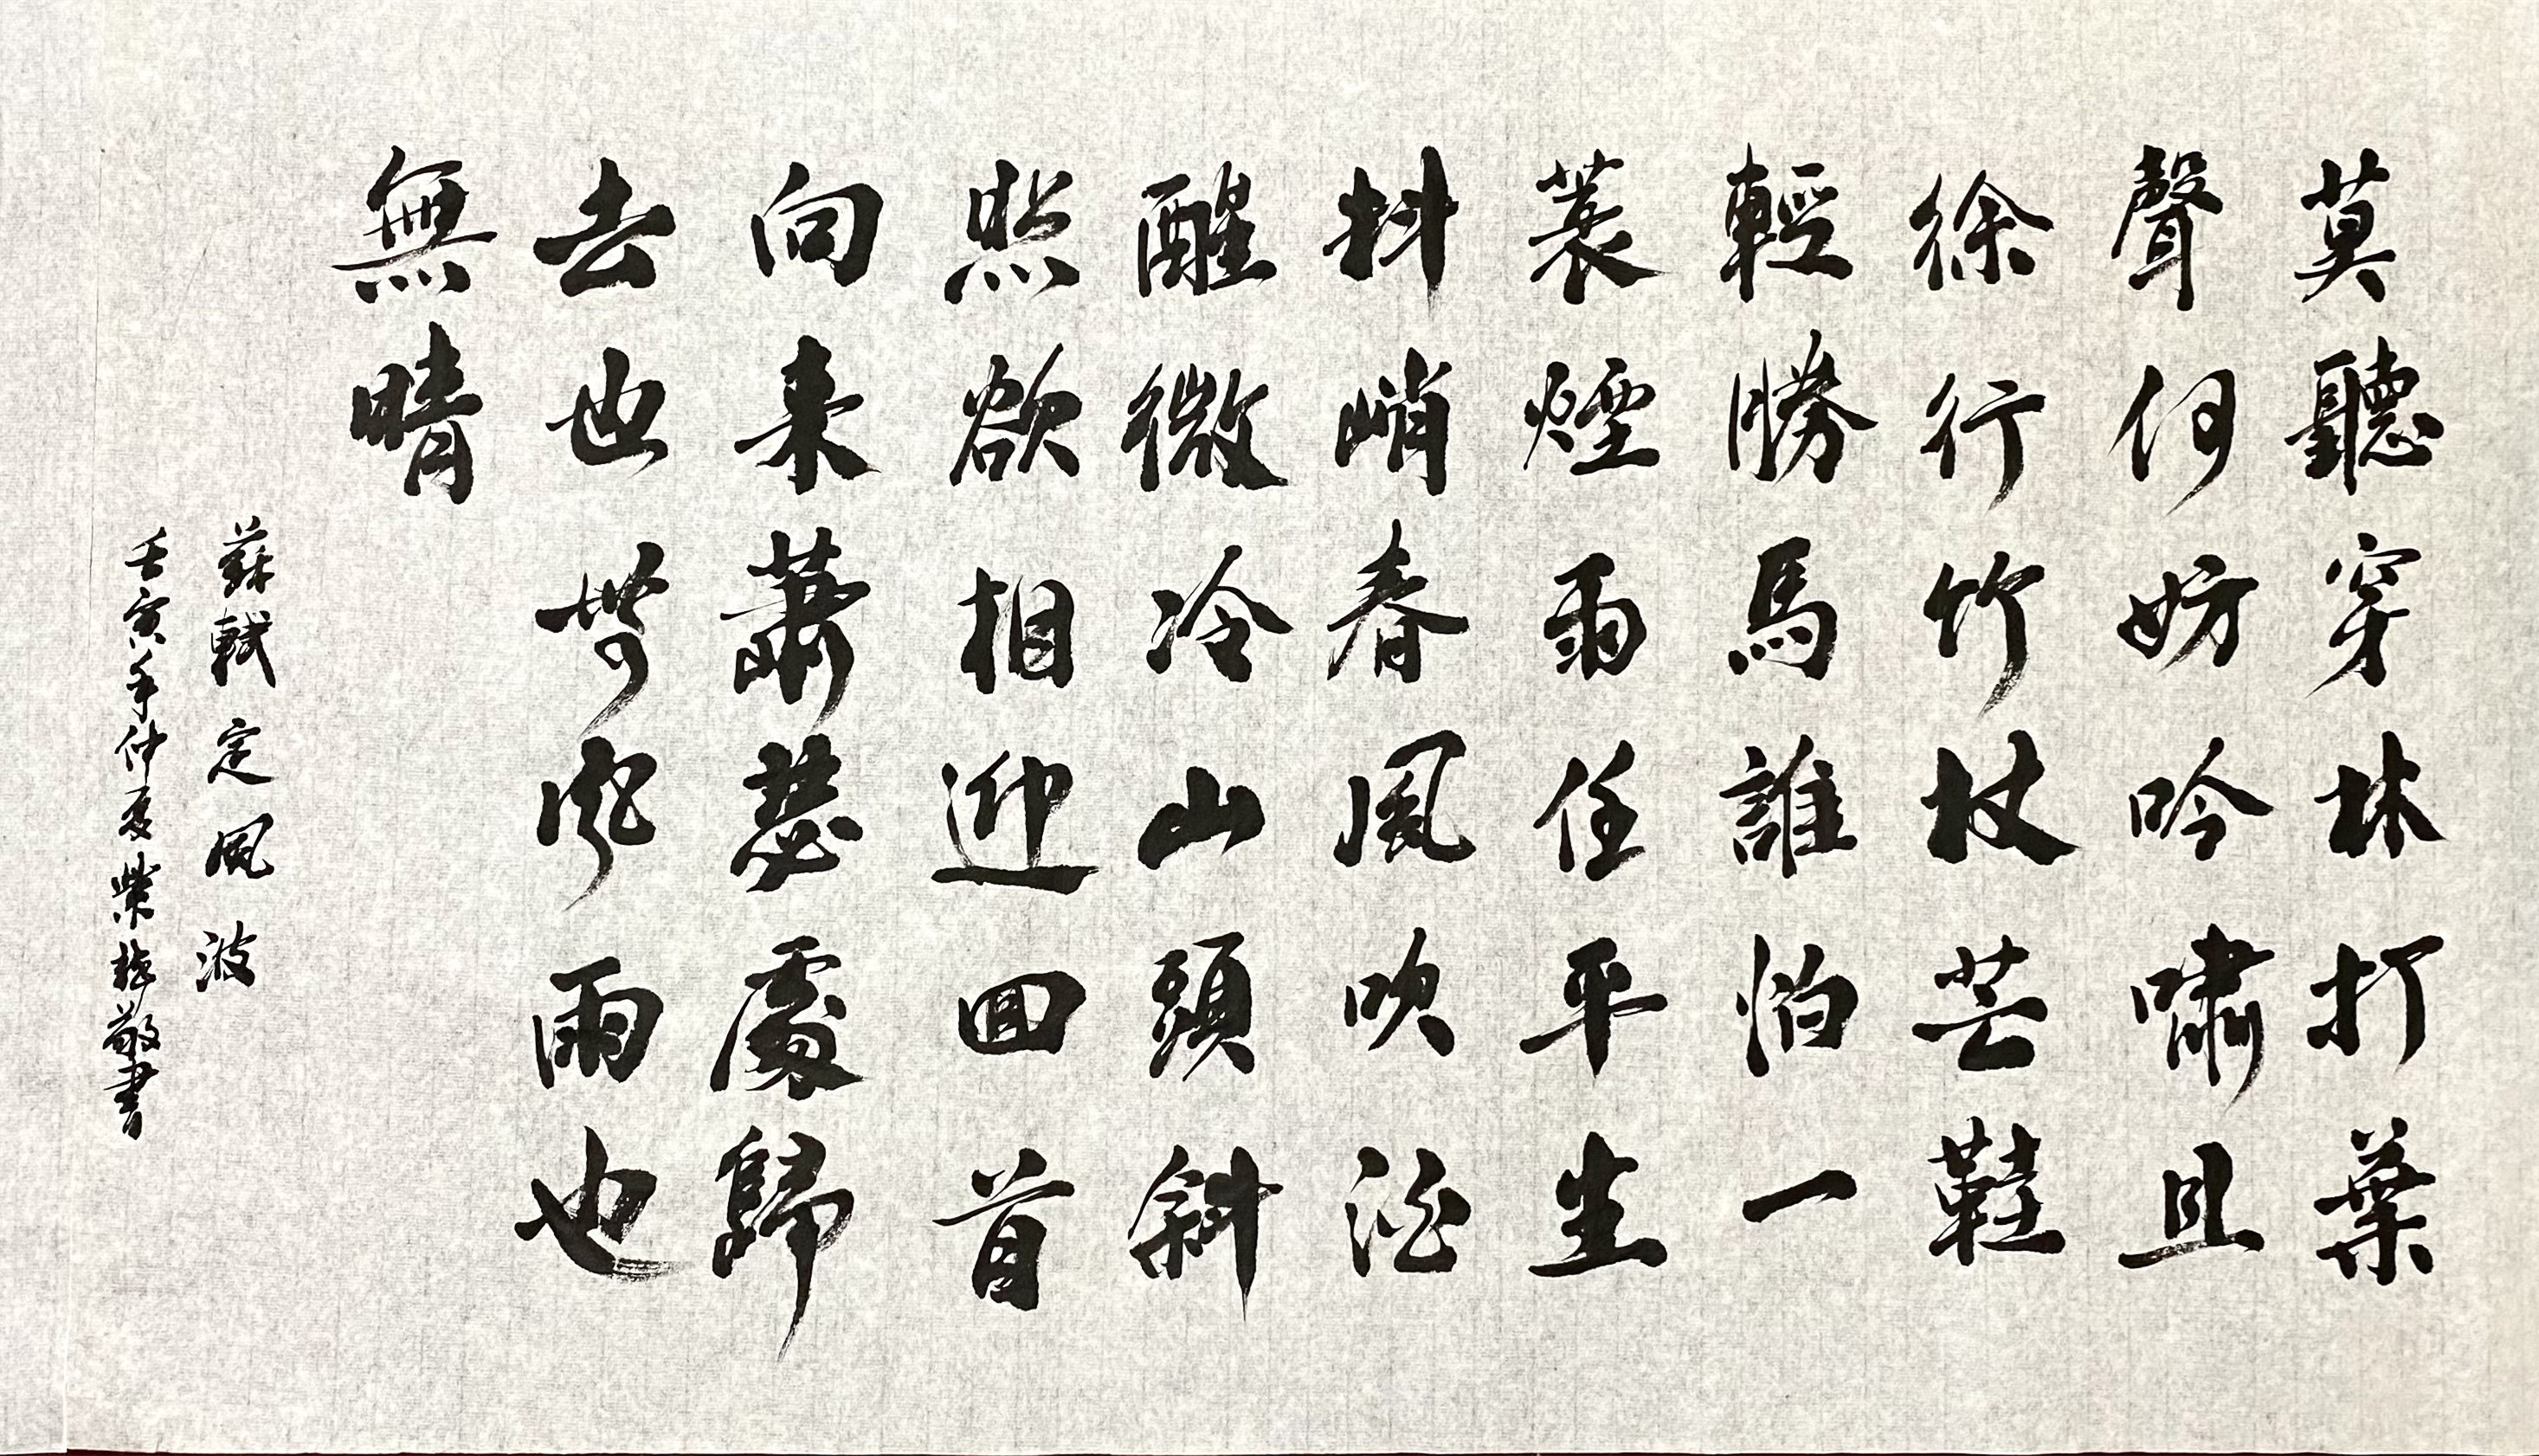 莫聽穿林打葉
聲何妨吟嘯且
徐行竹杖芒鞋
輕勝馬誰怕一
蓑煙雨任平生
料峭春風吹酒
醒微冷山頭斜
照欲相迎回首
向来蕭瑟處歸
去也無風雨也
無晴
蘇軾定風波
壬寅年仲夏業梅敬書